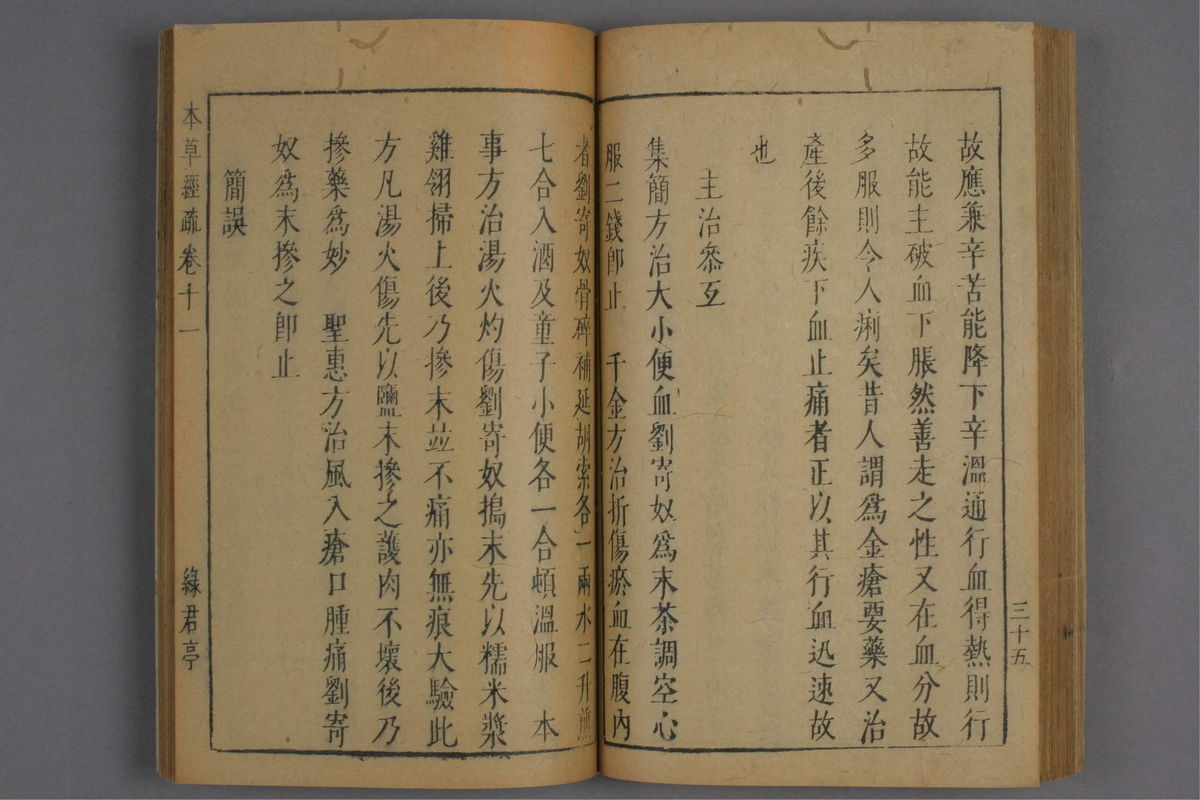 三十五
故應兼辛苦能降下辛溫通行血得熱則行
故能主破血下脹然善走之性又在血分故
多服則令人痢矣昔人謂爲金瘡要藥又治
產後餘疾下血止痛者正以其行血迅速故
也
主治叅互
集簡方治大小便血劉寄奴爲末茶調空心
服二錢卽止　千金方治折傷瘀血在腹內
者劉寄奴骨碎補延胡索各一兩水二升煎
七合入酒及童子小便各一合頓溫服　本
事方治湯火灼傷劉寄奴搗末先以糯米漿
雞翎掃上後乃摻末並不痛亦無痕大驗此
方凡湯火傷先以鹽末摻之護肉不壞後乃
摻藥爲妙　聖惠方治風入瘡口腫痛劉寄
奴爲末摻之卽止
簡誤
本草經疏卷十一
綠君亭